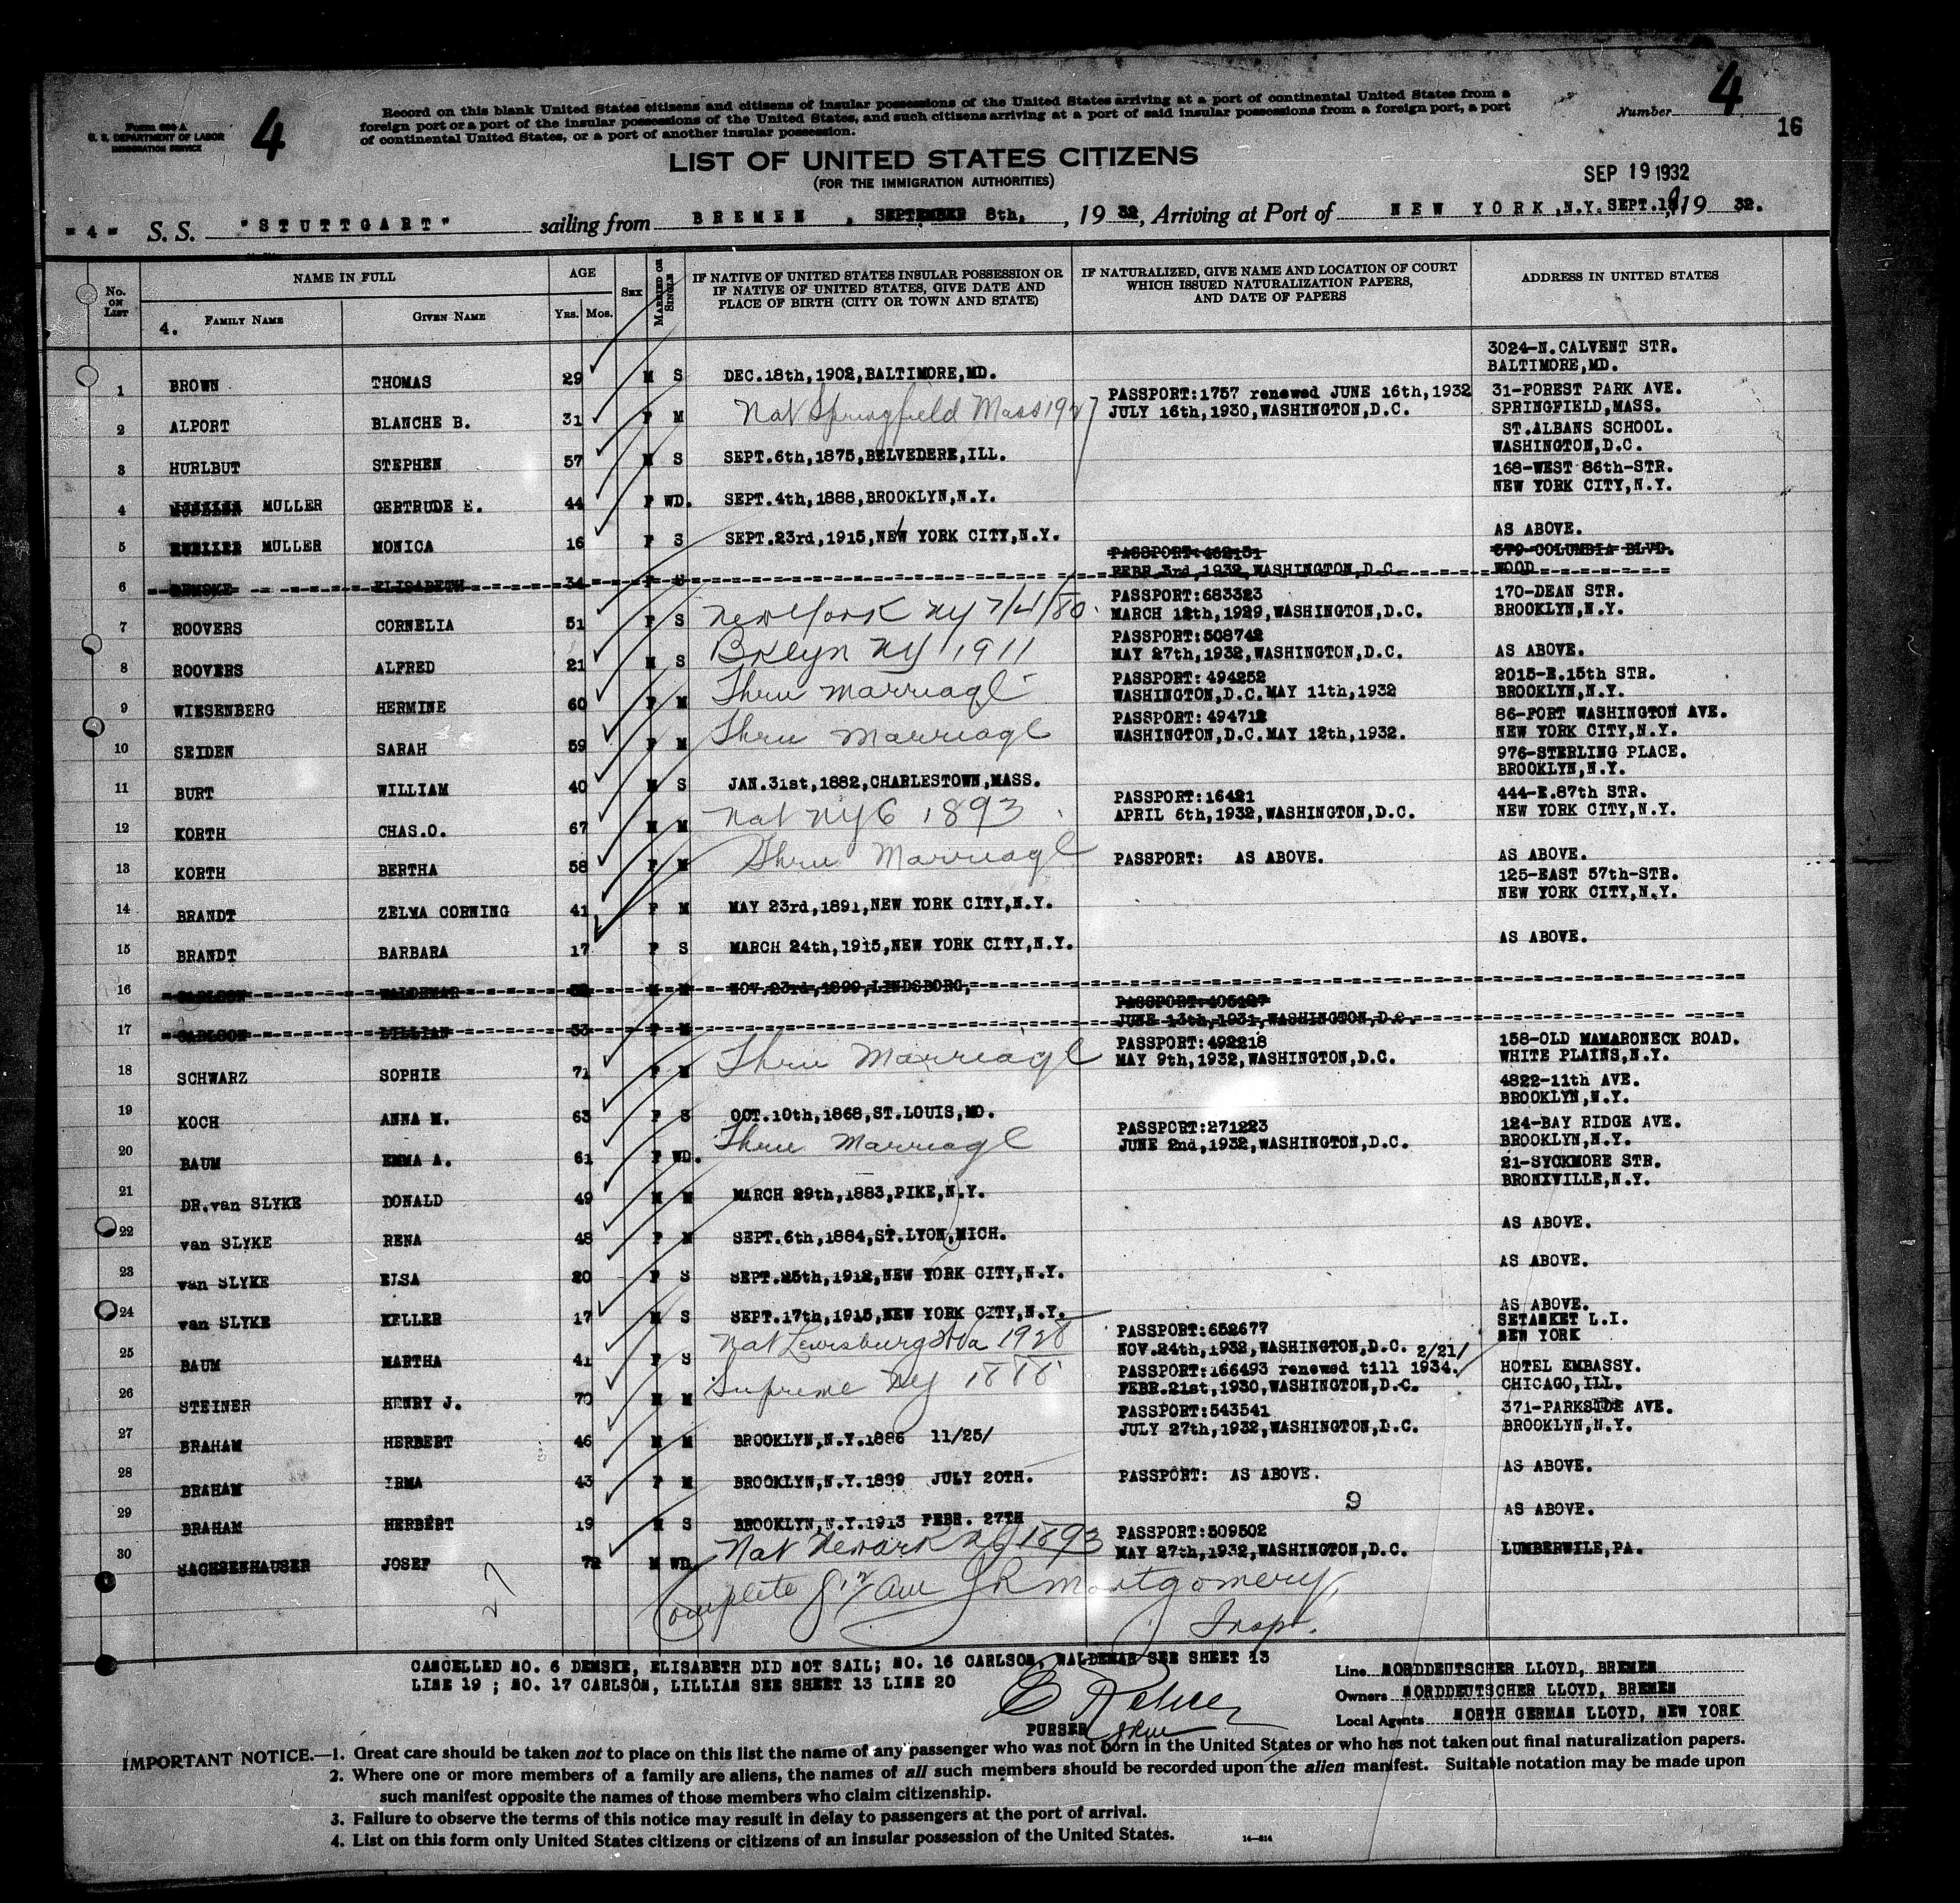 4
Form 630 A
U. S. DEPARTMENT OF LABOR
IMMIGRATION SERVICE
4
Record on this blank United States citizens and citizens of insular possessions of the United States arriving at a port of continental United States from a
foreign port or a port of the insular possessions of the United States, and such citizens arriving at a port of said insular possessions from a foreign port, a port
of continental United States, or a port of another insular possession.
Number
16
LIST OF UNITED STATES CITIZENS
(FOR THE IMMIGRATION AUTHORITIES)
SEP 19 1932
= 4 = S. S. "STUTTGART" sailing from BREMEN , SEPTEMBER 8th, , 19 32, Arriving at Port of NEW YORK,N.Y. SEPT.19, 19 32.
No. ON LIST NAME IN FULL AGE SEX MARRIED OR SINGLE IF NATIVE OF UNITED STATES INSULAR POSSESSION OR IF NATIVE OF UNITED STATES, GIVE DATE AND PLACE OF BIRTH (CITY OR TOWN AND STATE) IF NATURALIZED, GIVE NAME AND LOCATION OF COURT WHICH ISSUED NATURALIZATION PAPERS, AND DATE OF PAPERS ADDRESS IN UNITED STATES
4. FAMILY NAME GIVEN NAME Yrs. Mos.
1 BROWN THOMAS 29 M S DEC.18th,1902,BALTIMORE,MD. 3024-N.CALVENT STR. BALTIMORE,MD.
2 ALPORT BLANCHE B. 31 F M Nat Springfield Mass 1927 PASSPORT:1757 renewed JUNE 16th,1932 JULY 16th,1930,WASHINGTON,D.C. 31-FOREST PARK AVE. SPRINGFIELD,MASS.
3 HURLBUT STEPHEN 57 M S SEPT.6th,1875,BELVEDERE,ILL. ST.ALBANS SCHOOL. WASHINGTON,D.C.
4 MULLER GERTRUDE E. 44 F WD. SEPT.4th,1888,BROOKLYN,N.Y. 168-WEST 86th-STR. NEW YORK CITY,N.Y.
5 MULLER MONICA 16 F S SEPT.23rd,1915,NEW YORK CITY,N.Y. AS ABOVE.
6 DEMSKE ELISABETH 34 F S PASSPORT:462151 FEBR.3rd,1932,WASHINGTON,D.C. 379-COLUMBIA BLVD. WOOD
7 ROOVERS CORNELIA 51 F S New York NY 7/4/80. PASSPORT:683323 MARCH 12th,1929,WASHINGTON,D.C. 170-DEAN STR. BROOKLYN,N.Y.
8 ROOVERS ALFRED 21 M S Bklyn NY 1911 PASSPORT:508742 MAY 27th,1932,WASHINGTON,D.C. AS ABOVE.
9 WIESENBERG HERMINE 60 F M Thru Marriage PASSPORT:494252 WASHINGTON,D.C.MAY 11th,1932 2015-E.15th STR. BROOKLYN,N.Y.
10 SEIDEN SARAH 59 F M Thru Marriage PASSPORT:494712 WASHINGTON,D.C.MAY 12th,1932. 86-FORT WASHINGTON AVE. NEW YORK CITY,N.Y.
11 BURT WILLIAM 40 M S JAN.31st,1882,CHARLESTOWN,MASS. 976-STERLING PLACE. BROOKLYN,N.Y.
12 KORTH CHAS.O. 67 M M Nat NYC 1893 PASSPORT:16421 APRIL 6th,1932,WASHINGTON,D.C. 444-E.87th STR. NEW YORK CITY,N.Y.
13 KORTH BERTHA 58 F M Thru Marriage PASSPORT: AS ABOVE. AS ABOVE.
14 BRANDT ZELMA CORNING 41 F M MAY 23rd,1891,NEW YORK CITY,N.Y. 125-EAST 57th-STR. NEW YORK CITY,N.Y.
15 BRANDT BARBARA 17 F S MARCH 24th,1915,NEW YORK CITY,N.Y. AS ABOVE.
16 CARLSON WALDEMAR 32 M M NOV.23rd,1899,LINDSBORG,
17 CARLSON LILLIAN 33 F M PASSPORT:405127 JUNE 13th,1931,WASHINGTON,D.C.
18 SCHWARZ SOPHIE 71 F M Thru Marriage PASSPORT:492218 MAY 9th,1932,WASHINGTON,D.C. 158-OLD MAMARONECK ROAD. WHITE PLAINS,N.Y.
19 KOCH ANNA M. 63 F S OCT.10th,1868,ST.LOUIS,MO. 4822-11th AVE. BROOKLYN,N.Y.
20 BAUM EMMA A. 61 F WD. Thru Marriage PASSPORT:271223 JUNE 2nd,1932,WASHINGTON,D.C. 124-BAY RIDGE AVE. BROOKLYN,N.Y.
21 DR.van SLYKE DONALD 49 M M MARCH 29th,1883,PIKE,N.Y. 21-SYCKMORE STR. BRONXVILLE,N.Y.
22 van SLYKE RENA 48 F M SEPT.6th,1884,ST.LYON,MICH. AS ABOVE.
23 van SLYKE ELSA 20 F S SEPT.25th,1912,NEW YORK CITY,N.Y. AS ABOVE.
24 van SLYKE KELLER 17 M S SEPT.17th,1915,NEW YORK CITY,N.Y. AS ABOVE.
25 BAUM MARTHA 41 F S Nat Lewisburg 1928 PASSPORT:652677 NOV.24th,1932,WASHINGTON,D.C. SETANKET L.I. NEW YORK
26 STEINER HENRY J. 70 M M Supreme NY 1888 PASSPORT:166493 renewed till 2/21/ 1934. FEBR.21st,1930,WASHINGTON,D.C. HOTEL EMBASSY. CHICAGO,ILL.
27 BRAHAM HERBERT 46 M M BROOKLYN,N.Y.1886 11/25/ PASSPORT:543541 JULY 27th,1932,WASHINGTON,D.C. 371-PARKSIDE AVE. BROOKLYN,N.Y.
28 BRAHAM IRMA 43 F M BROOKLYN,N.Y.1889 JULY 20TH. PASSPORT: AS ABOVE. AS ABOVE.
9
29 BRAHAM HERBERT 19 M S BROOKLYN,N.Y.1913 FEBR. 27TH AS ABOVE.
30 SACHSENHAUSER JOSEF 72 M WD. Nat Newark NJ 1893 PASSPORT:509502 MAY 27th,1932,WASHINGTON,D.C. LUMBERWILE,PA.
27
Complete J R Montgomery
Insp.
CANCELLED NO. 6 DEMSKE, ELISABETH DID NOT SAIL; NO. 16 CARLSON, WALDEMAR SEE SHEET 13
LINE 19 ; NO. 17 CARLSON, LILLIAN SEE SHEET 13 LINE 20
PURSER
Line NORDDEUTSCHER LLOYD, BREMEN
Owners NORDDEUTSCHER LLOYD, BREMEN
Local Agents NORTH GERMAN LLOYD, NEW YORK
IMPORTANT NOTICE.—1. Great care should be taken not to place on this list the name of any passenger who was not born in the United States or who has not taken out final naturalization papers.
2. Where one or more members of a family are aliens, the names of all such members should be recorded upon the alien manifest. Suitable notation may be made upon
such manifest opposite the names of those members who claim citizenship.
3. Failure to observe the terms of this notice may result in delay to passengers at the port of arrival.
4. List on this form only United States citizens or citizens of an insular possession of the United States.
14—814